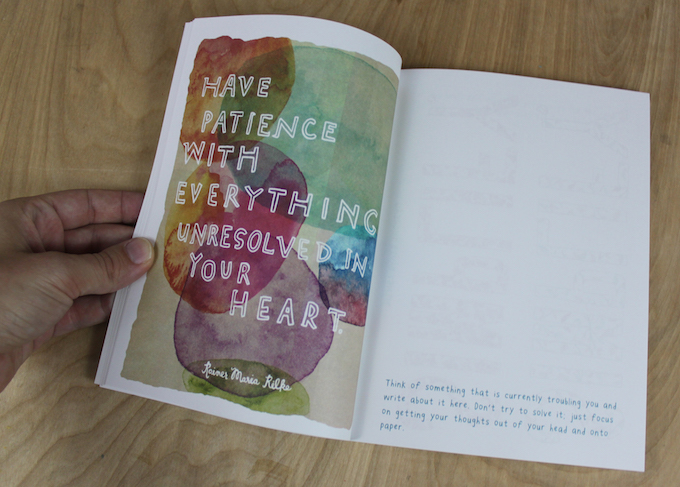 HAVE
PATIENCE
WITH
EVERYTHING
UNRESOLVED IN
YOUR
HEART.
Rainer Maria Rilke
Think of something that is currently troubling you and
write about it here. Don't try to solve it; just focus
on getting your thoughts out of your head and onto
paper.